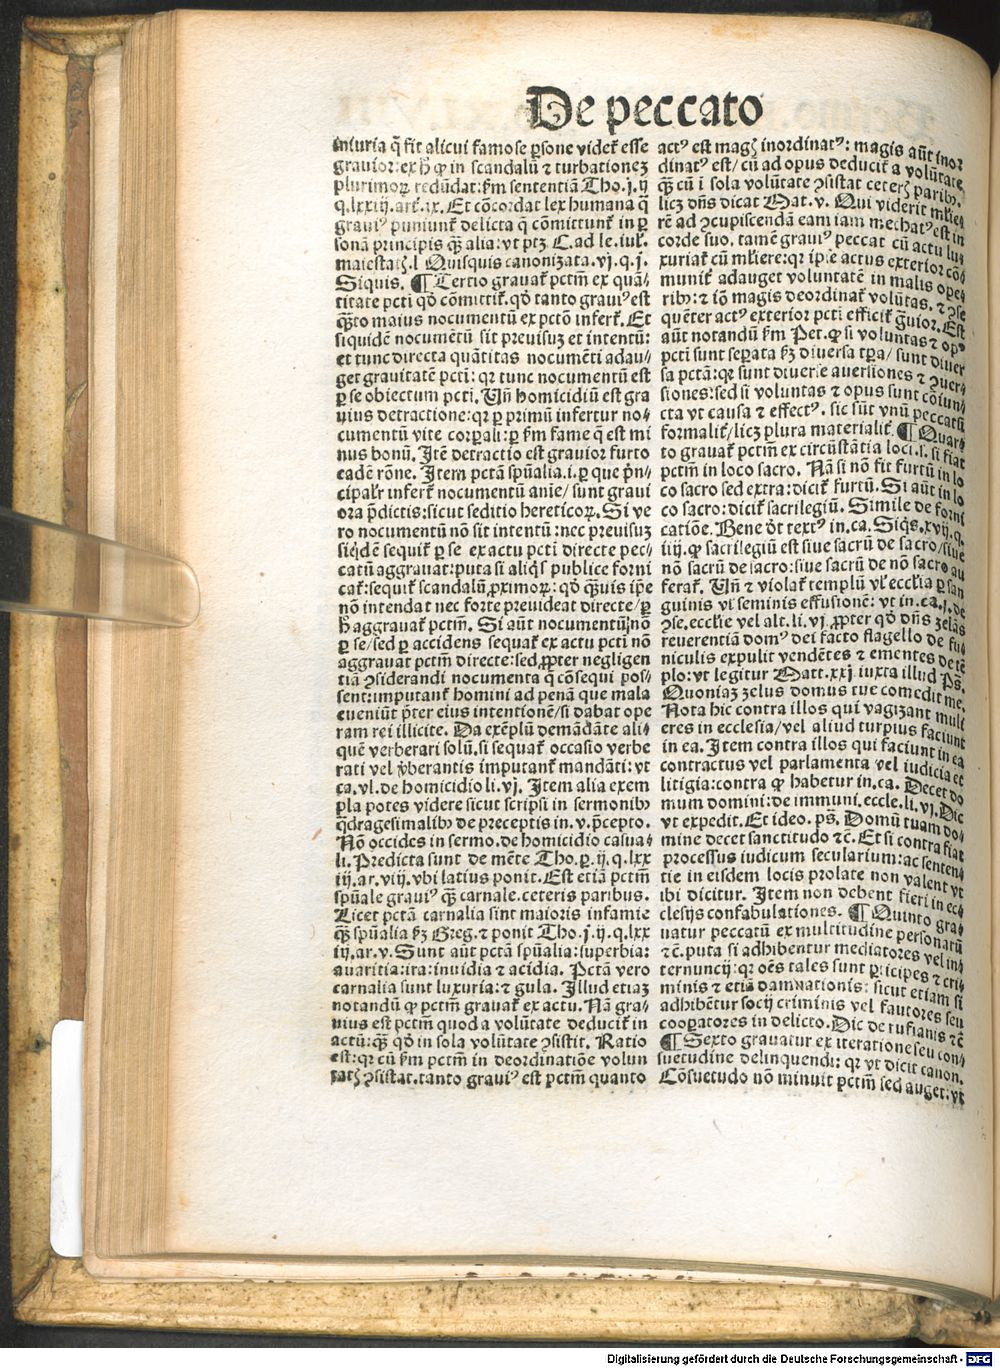 De peccato
iniuria q̄ fit alicui famose ꝑsone videt᷑ esse
grauior: ex hͦ ꝙ in scandalū ⁊ turbationeꝫ
plurimoꝝ redūdat: ẜm sententiā Tho. j. ij
q. lxxiij. art᷑. ix. Et cōcordat lex humana q̄
graui⁹ puniunt᷑ delicta q̄ cōmittunt᷑ in ꝑ
sonā principis qͣ̄ alia: vt ptꝫ C. ad le. iul᷑.
maiestatꝭ. l Quisquis canonizata. vj. q. j.
Siquis. ¶ Tertio grauat᷑ pctm̄ ex quā⸗
titate pcti qd̓ cōmittit᷑. qd̓ tanto graui⁹ est
qͣ̄to maius nocumentū ex pctō infert᷑. Et
siquidē nocumētū sit preuisuꝫ et intentū:
et tunc directa quātitas nocumēti adau⸗
get grauitatē pcti: qꝛ tunc nocumentū est
ꝑ se obiectum pcti. Vn̄ homicidiū est gra
uius detractione: qꝛ ꝑ primū infertur no⸗
cumentū vite corꝑali: ꝑ ẜm fame q̄ est mi
nus bonū. Itē detractio est grauior furto
eadē rōne. Item pctā spūalia. i. ꝑ que pͥn⸗
cipalꝛ infert᷑ nocumentū anīe / sunt graui
ora p̄dictis: sicut seditio hereticoꝝ. Si ve
ro nocumentū nō sit intentū: nec preuisuꝫ
siqͥdē sequit᷑ ꝑ se ex actu pcti directe pec⸗
catū aggrauat: puta si aliqͥs publice forni
cat᷑: sequit᷑ scandalū ꝓximoꝝ: qd̓ qͣ̄uis ip̄e
nō intendat nec forte preuideat directe / ꝑ
hͦ aggrauat᷑ pctm̄. Si aūt nocumentū nō
ꝑ se / sed ꝑ accidens sequat᷑ ex actu pcti nō
aggrauat pctm̄ directe: sed ꝓpter negligen
tiā ꝯsiderandi nocumenta q̄ cōsequi pos⸗
sent: imputant᷑ homini ad penā que mala
eueniūt p̄ter eius intentionē / si dabat ope
ram rei illicite. Da exēplū demādāte ali⸗
quē verberari solū. si sequat᷑ occasio verbe
rati vel v̓berantis imputant᷑ mandāti: vt
ca. vl. de homicidio li. vj. Item alia exem
pla potes videre sicut scripsi in sermonibꝰ
qͣ̄dragesimalibꝰ de preceptis in. v. p̄cepto.
Nō occides in sermo. de homicidio casua⸗
li. Predicta sunt de mēte Tho. ꝑ. ij. q. lxx
iij. ar. viij. vbi latius ponit. Est etiā pctm̄
spūale graui⁹ qͣ̄ carnale. ceteris paribus.
Licet pctā carnalia sint maioris infamie
qͣ̄ spūalia ẜꝫ Greg. ⁊ ponit Tho. j. ij. q. lxx
iij. ar. v. Sunt aūt pctā spūalia: superbia:
auaritia: ira: inuidia ⁊ acidia. Pctā vero
carnalia sunt luxuria: ⁊ gula. Illud etiaꝫ
notandū ꝙ pctm̄ grauat᷑ ex actu. Nā gra⸗
uius est pctm̄ quod a volūtate deducit᷑ in
actū: qͣ̄ qd̓ in sola volūtate ꝯsistit. Ratio
est: qꝛ cū ẜm pctm̄ in deordinatiōe volun
tatꝭ ꝯsistat. tanto graui⁹ est pctm̄ quanto
act⁹ est magꝭ inordinat⁹: magis aūt inor
dinat⁹ est / cū ad opus deducit᷑ a volūtate,
qͣ̄ cū ī sola volūtate ꝯsistat ceterꝭ paribꝰ.
licꝫ dn̄s dicat Mat. v. Qui viderit mlie⸗
rē ad ꝯcupiscendā eam iam mechat⁹ est in
corde suo. tamē graui⁹ peccat cū actu lu⸗
xuriat᷑ cū mliere: qꝛ ip̄e actus exterior cō⸗
munit᷑ adauget voluntatē in malis ope⸗
ribꝰ: ⁊ iō magis deordinat᷑ volūtas. ⁊ ꝯse
quēter act⁹ exterior pcti efficit᷑ gͣuior. Est
aūt notandū ẜm Pet. ꝙ si voluntas ⁊ op⁹
pcti sunt seꝑata ẜꝫ diuersa tꝑa / sunt diuer
sa pctā: qꝛ sunt diuerse auersiones ⁊ ꝯuer⸗
siones: sed si voluntas ⁊ opus sunt cōiun⸗
cta vt causa ⁊ effect⁹. sic sūt vnū peccatū
formalit᷑ / licꝫ plura materialit᷑. ¶ Quar⸗
to grauat᷑ pctm̄ ex circūstātia loci. i. si fiat
pctm̄ in loco sacro. Nā si nō fit furtū in lo
co sacro sed extra: dicit᷑ furtū. Si aūt in lo
co sacro: dicit᷑ sacrilegiū. Simile de forni
catiōe. Bene d̓t text⁹ in. ca. Siqͥs. xvij. q.
iiij. ꝙ sacrilegiū est siue sacrū de sacro / siue
nō sacrū de sacro: siue sacrū de nō sacro au
ferat᷑. Vn̄ ⁊ violat᷑ templū vl᷑ ecclīa ꝑ san
guinis vl᷑ seminis effusionē: vt in. ca. j. de
ꝯse. ecclīe vel alt. li. vj. ꝓpter qd̓ dn̄s zelās
reuerentiā dom⁹ dei facto flagello de fu⸗
niculis expulit vendētes ⁊ ementes de tē
plo: vt legitur Matt. xxj iuxta illud Ps̄.
Quoniaꝫ zelus domus tue comedit me.
Nota hic contra illos qui vagizant muli
eres in ecclesia / vel aliud turpius faciunt
in ea. Item contra illos qui faciunt in ea
contractus vel parlamenta vel iudicia et
litigia: contra ꝙ habetur in. ca. Decet do
mum domini: de immuni. eccle. li. vj. Dic
vt expedit. Et ideo. ps̄. Domū tuam do⸗
mine decet sanctitudo ⁊c̄. Et si contra fiat
processus iudicum secularium: ac senten⸗
tie in eisdem locis prolate non valent vt
ibi dicitur. Item non debent fieri in ec⸗
clesijs confabulationes. ¶ Quinto gra⸗
uatur peccatū ex multitudine personarū
⁊c̄. puta si adhibentur mediatores vel in⸗
ternuncij: qꝛ oēs tales sunt ꝑticipes ⁊ cri⸗
minis ⁊ etiā damnationis: sicut etiam si
adhibētur socij criminis vel fautores seu
cooꝑatores in delicto. Dic de rufianis ⁊c̄
¶ Sexto grauatur ex iteratione seu con⸗
suetudine delinquendi: qꝛ vt dicit canon.
Cōsuetudo nō minuit pctm̄ sed auget: vt
Digitalisierung gefördert durch die Deutsche Forschungsgemeinschaft - DFG